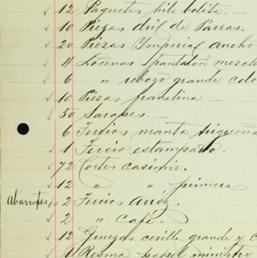 12 Paquetes hilo bolita.
10 Piezas dril de Parras.
20 Piezas Imperial ancho
4 Docenas Pantalon mezcl
6 " rebozo grande colo
10 Piezas franelina
50 Sarapes.
6 Tercios manta trigueña
1 Tercio estampado.
72 Cortes casimir.
12 " " primera
Abarrotes. 2 Tercios Arroz.
2 " Café.
12 Gruezas cerillo grande y c
Resma papel ministro